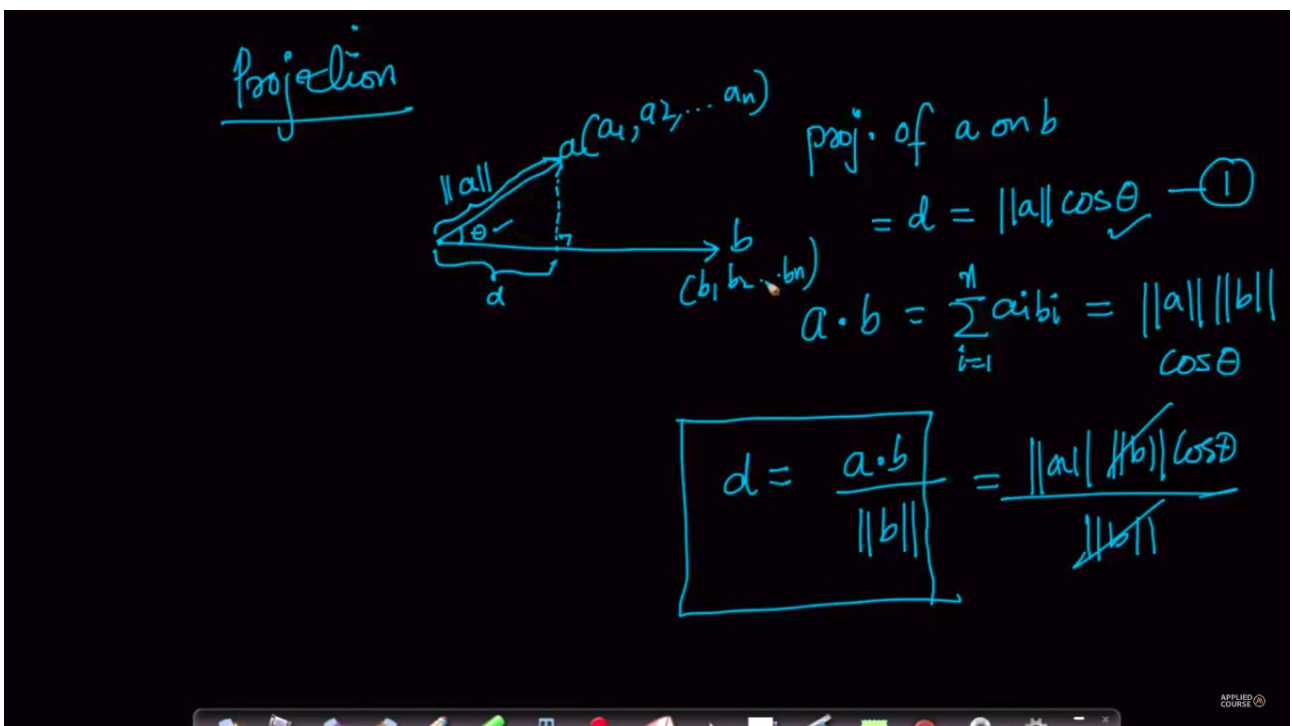 Projection
a(a1, a2, ... an)
||a||
θ
d
b
(b1 b2 ... bn)
proj. of a on b
= d = ||a|| cosθ — 1
a · b = n Σ i=1 aibi = ||a|| ||b||
cosθ
d = a·b / ||b|| = ||a|| ||b|| cosθ / ||b||
APPLIED
COURSE